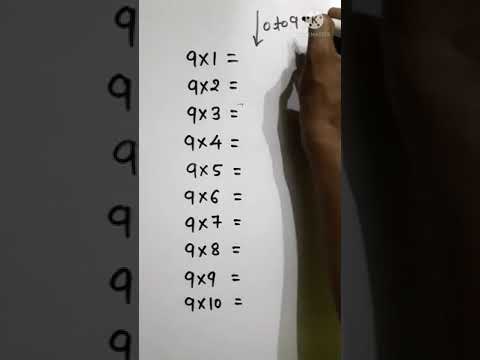 0 to 9
9x1 =
9x2 =
9x3 =
9x4 =
9x5 =
9x6 =
9x7 =
9x8 =
9x9 =
9x10 =